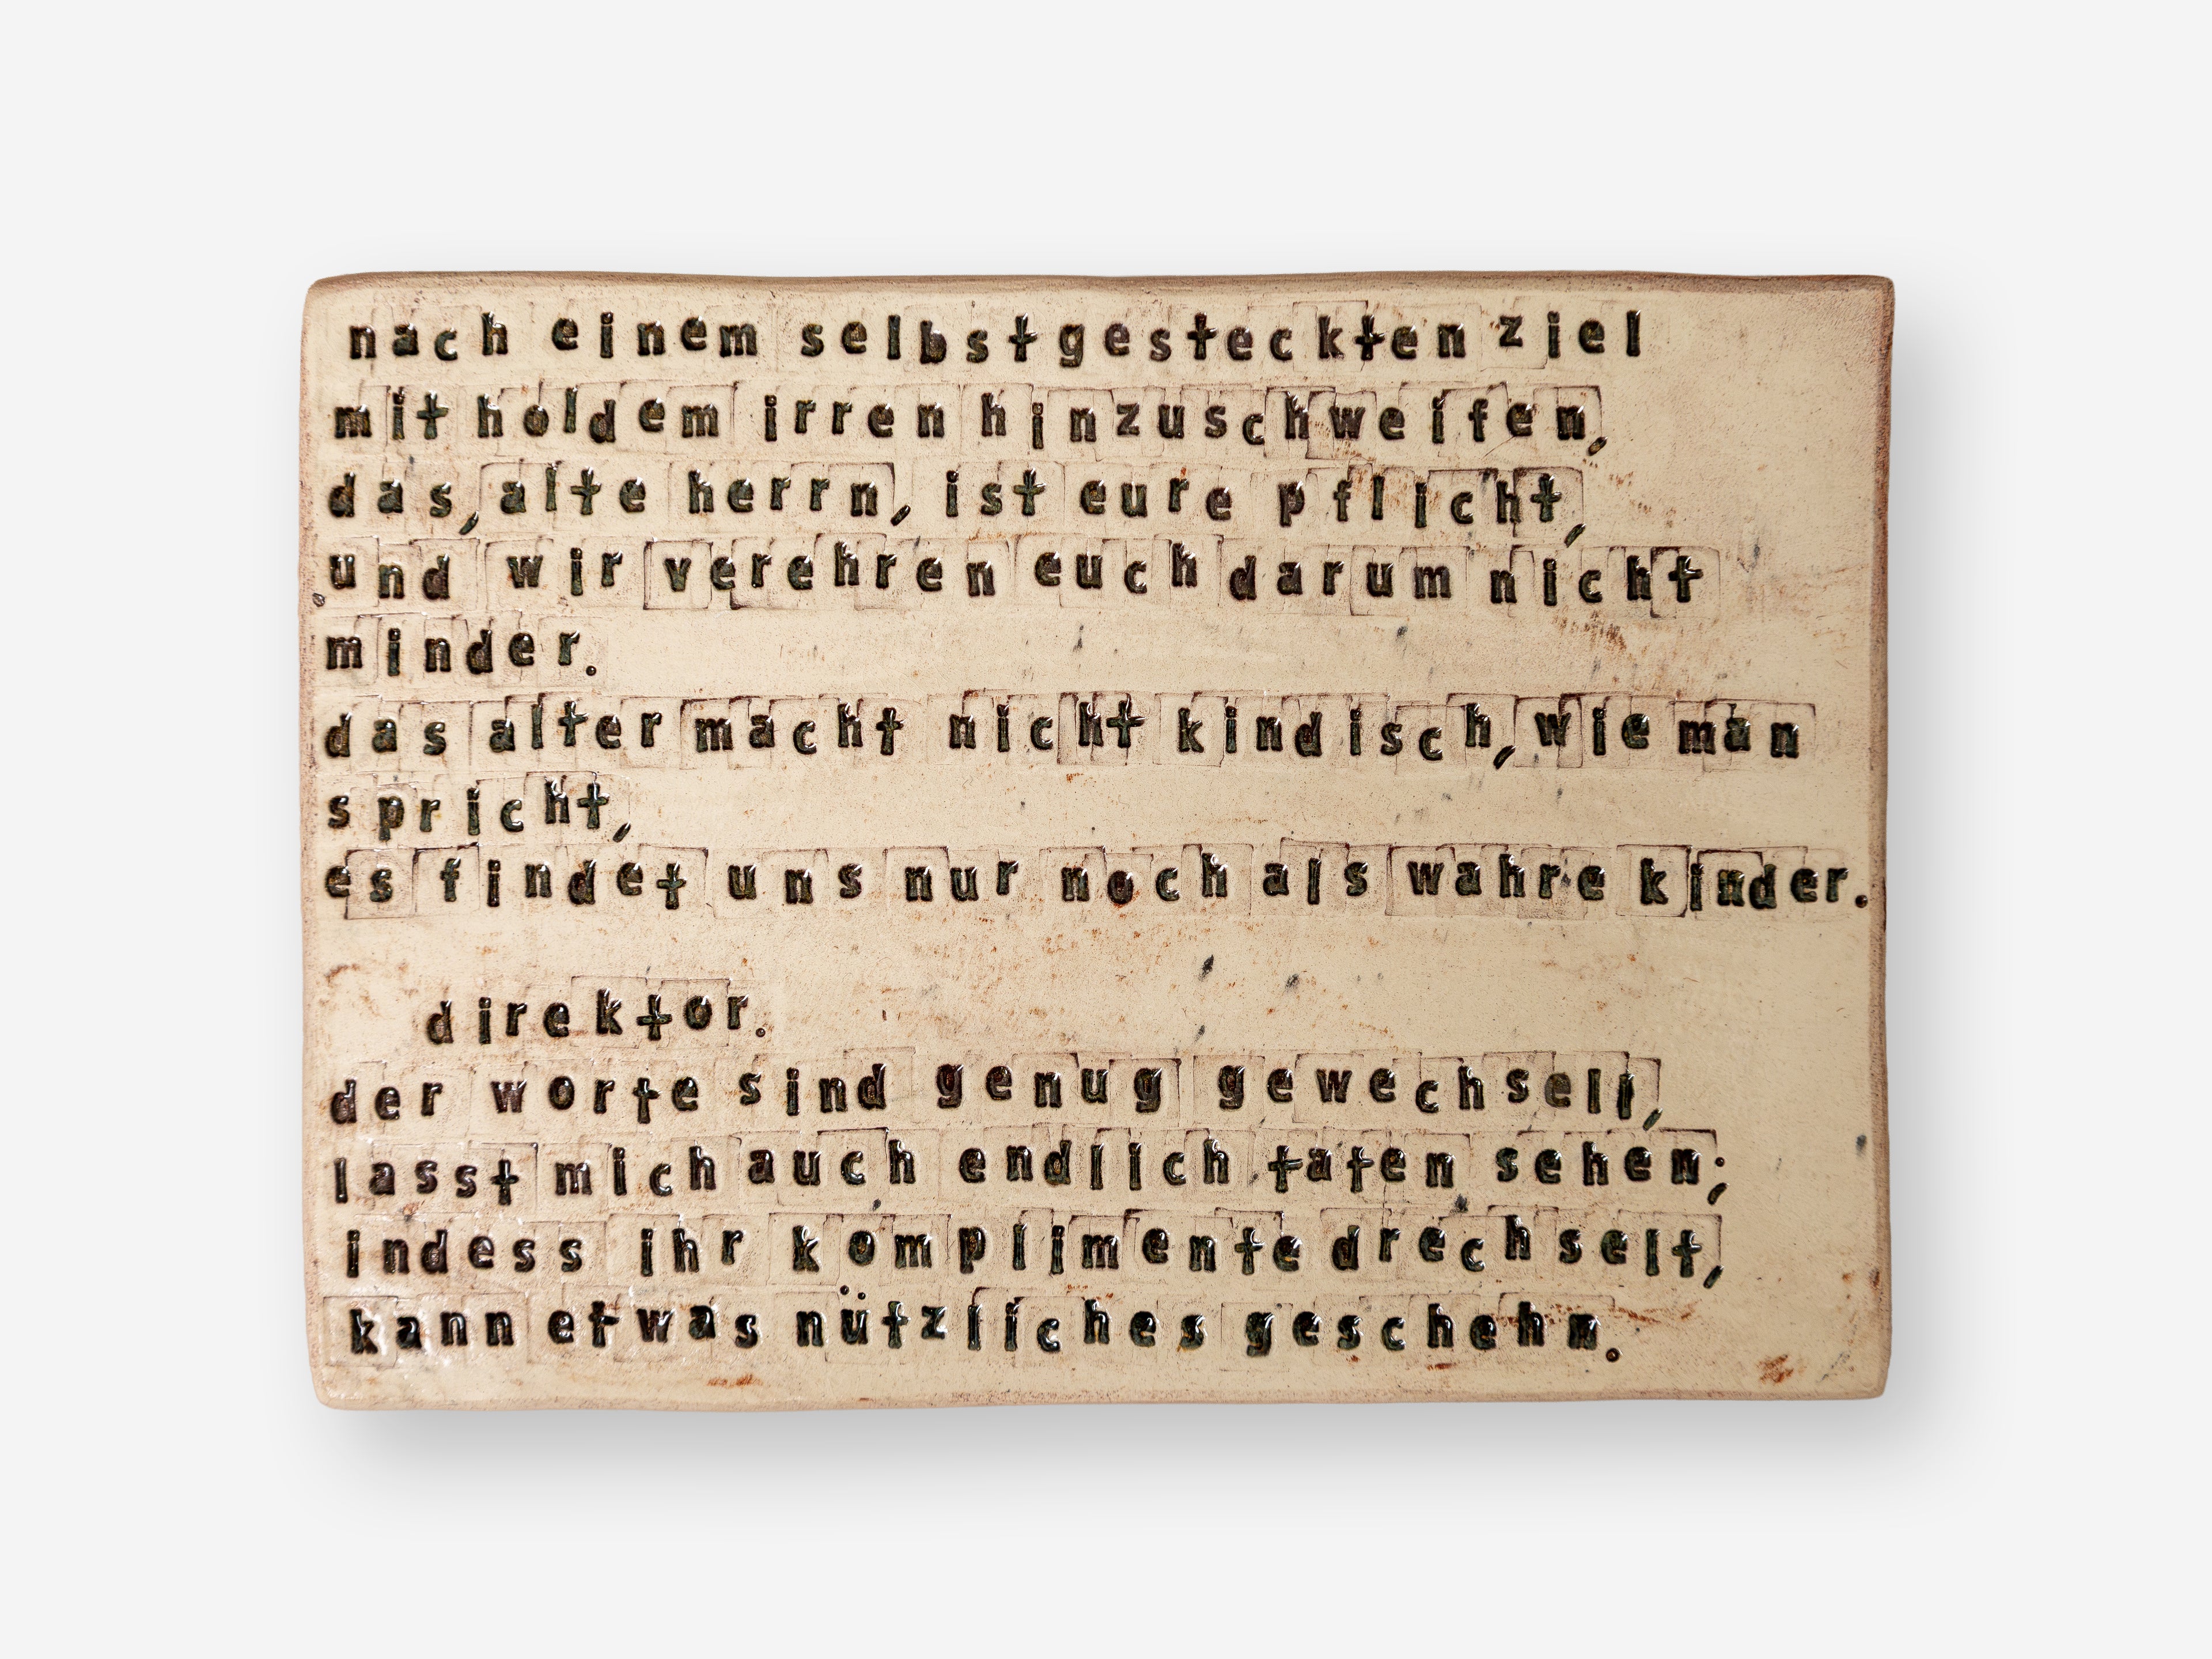 nach einem selbstgesteckten ziel
mit holdem irren hinzuschweifen,
das, alte herrn, ist eure pflicht,
und wir verehren euch darum nicht
minder.
das alter macht nicht kindisch, wie man
spricht,
es findet uns nur noch als wahre kinder.
direktor.
der worte sind genug gewechselt,
lasst mich auch endlich taten sehen;
indess ihr komplimente drechselt,
kann etwas nützliches geschehn.